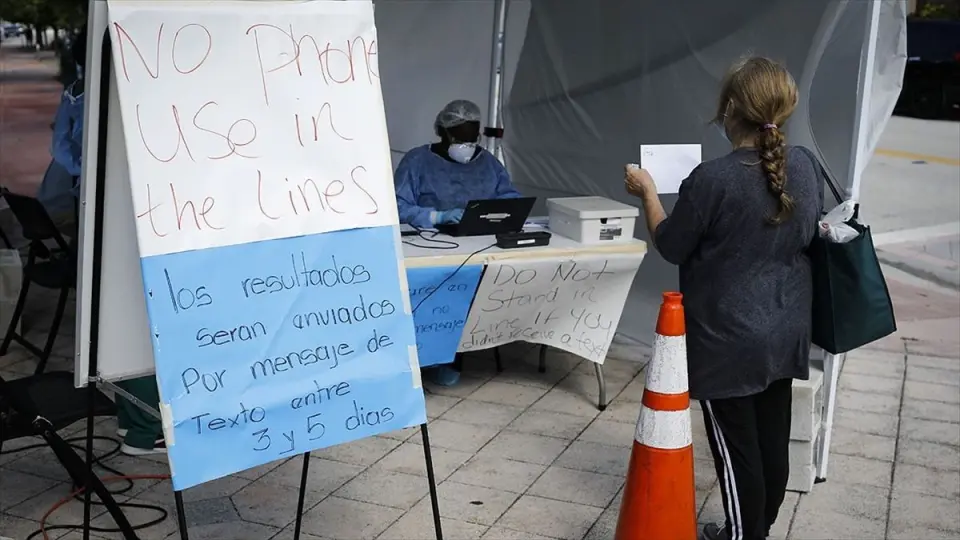 No phone
Use in
the Lines
los resultados
seran anviados
Por mensaje de
Texto entre
3 y 5 dias
en
no
mensaje
Do Not
Stand in
Line If you
didnt receive a text